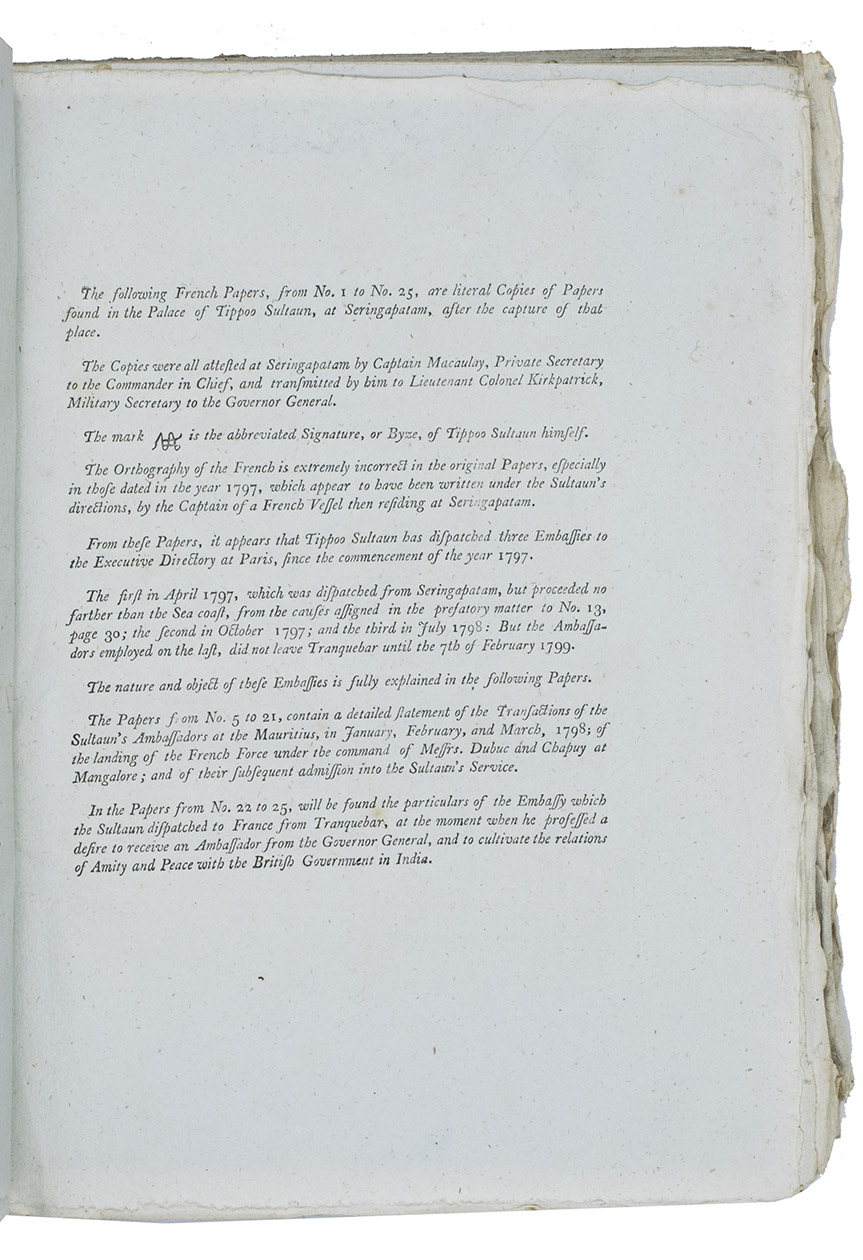 The following French Papers, from No. 1 to No. 25, are literal Copies of Papers
found in the Palace of Tippoo Sultaun, at Seringapatam, after the capture of that
place.
The Copies were all atteſted at Seringapatam by Captain Macaulay, Private Secretary
to the Commander in Chief, and tranſmitted by him to Lieutenant Colonel Kirkpatrick,
Military Secretary to the Governor General.
The mark is the abbreviated Signature, or Byze, of Tippoo Sultaun himſelf.
The Orthography of the French is extremely incorrect in the original Papers, eſpecially
in thoſe dated in the year 1797, which appear to have been written under the Sultaun's
directions, by the Captain of a French Veſſel then reſiding at Seringapatam.
From theſe Papers, it appears that Tippoo Sultaun has diſpatched three Embaſſies to
the Executive Directory at Paris, ſince the commencement of the year 1797.
The firſt in April 1797, which was diſpatched from Seringapatam, but proceeded no
farther than the Sea coaſt, from the cauſes aſſigned in the prefatory matter to No. 13,
page 30; the ſecond in October 1797; and the third in July 1798: But the Ambaſſa-
dors employed on the laſt, did not leave Tranquebar until the 7th of February 1799.
The nature and object of theſe Embaſſies is fully explained in the following Papers.
The Papers f om No. 5 to 21, contain a detailed ſtatement of the Tranſactions of the
Sultaun's Ambaſſadors at the Mauritius, in January, February, and March, 1798; of
the landing of the French Force under the command of Meſſrs. Dubuc and Chapuy at
Mangalore; and of their ſubſequent admiſſion into the Sultaun's Service.
In the Papers from No. 22 to 25, will be found the particulars of the Embaſſy which
the Sultaun diſpatched to France from Tranquebar, at the moment when he profeſſed a
deſire to receive an Ambaſſador from the Governor General, and to cultivate the relations
of Amity and Peace with the Britiſh Government in India.